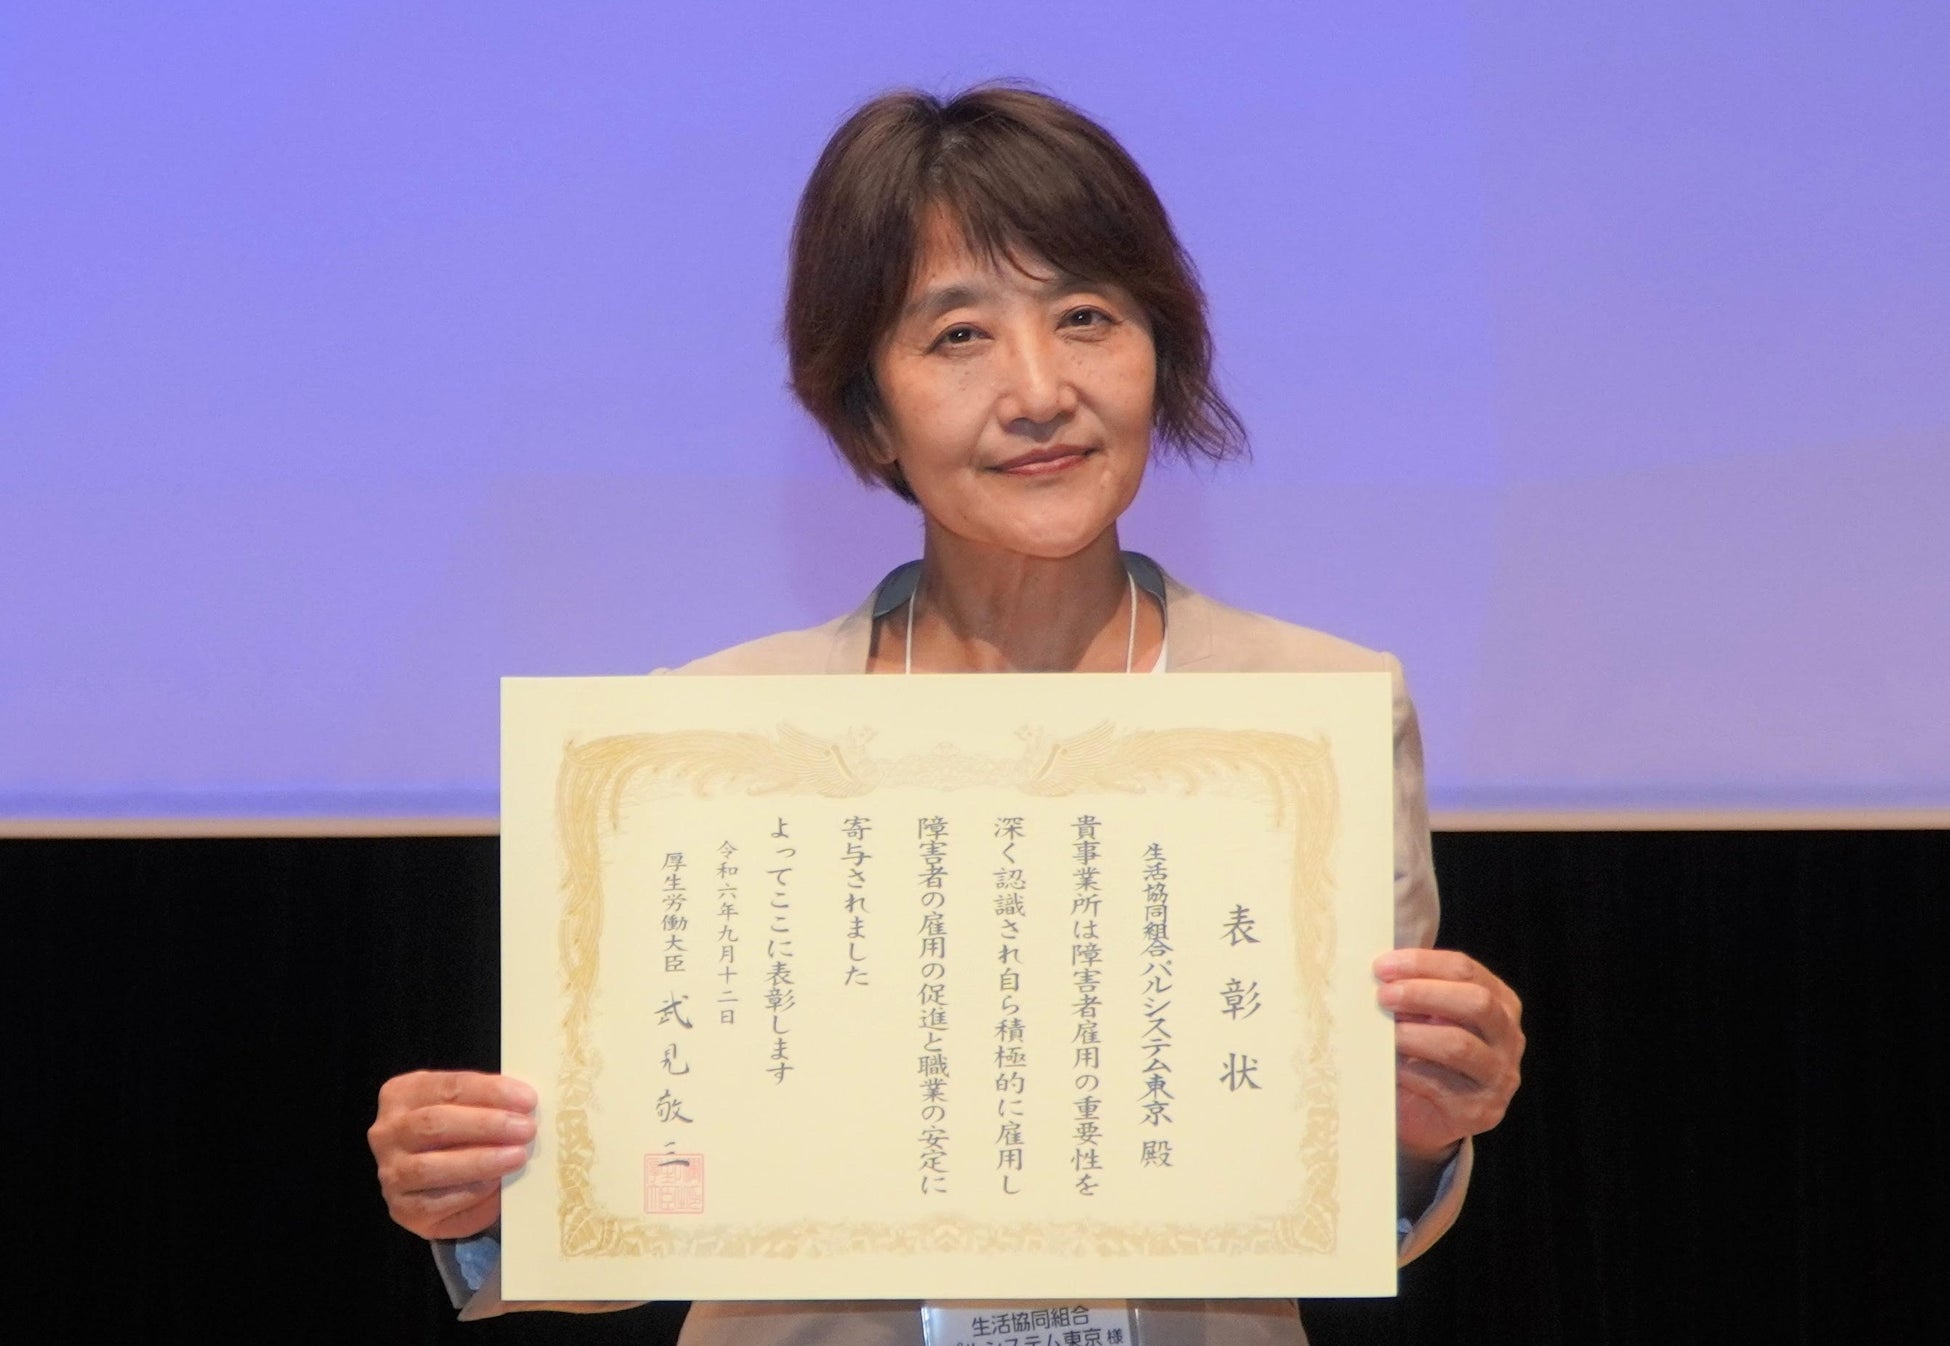 表彰状
生活協同組合パルシステム東京 殿
貴事業所は障害者雇用の重要性を
深く認識され自ら積極的に雇用し
障害者の雇用の促進と職業の安定に
寄与されました
よってここに表彰します
令和六年九月十二日
厚生労働大臣 武見敬三
生活協同組合
パルシステム東京 様